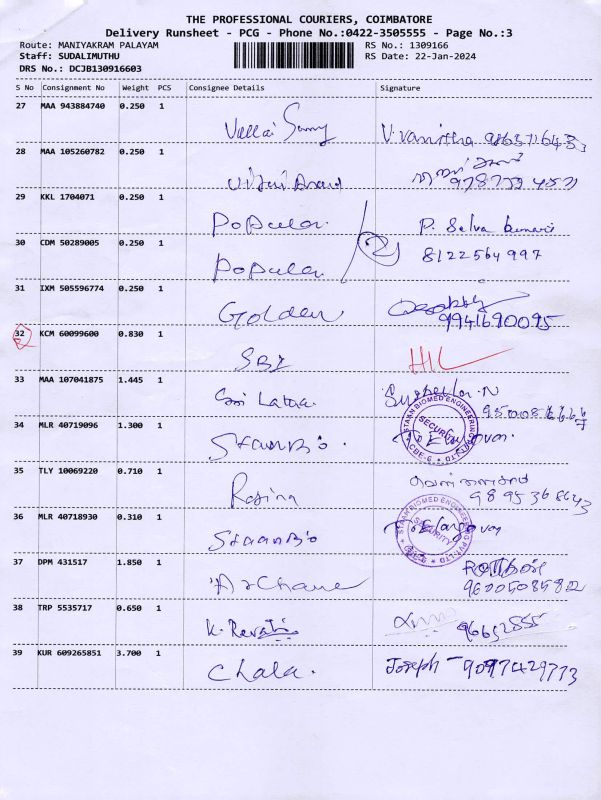 THE PROFESSIONAL COURIERS, COIMBATORE
Delivery Runsheet - PCG - Phone No.:0422-3505555 - Page No.:3
Route: MANIYAKRAM PALAYAM RS No.: 1309166
Staff: SUDALIMUTHU RS Date: 22-Jan-2024
DRS No.: DCJB130916603
S No Consignment No Weight PCS Consignee Details Signature
27 MAA 943884740 0.250 1 Vellai Samy V. Vanitha
28 MAA 105260782 0.250 1
29 KKL 1704071 0.250 1 Popular P. Selva kumari
30 CDM 50289005 0.250 1 Popular 8122564997
31 IXM 505596774 0.250 1 Golden
9941690095
32 KCM 60099600 0.830 1 SBI
33 MAA 107041875 1.445 1 Sri Latha
34 MLR 40719096 1.300 1 StaanBio
STAAN BIOMED ENGINEERING PVT LTD SECURITY CBE-6
35 TLY 10069220 0.710 1 Rosina
36 MLR 40718930 0.310 1 StaanBio
STAAN BIOMED ENGINEERING PVT LTD SECURITY
37 DPM 431517 1.850 1 Archana
38 TRP 5535717 0.650 1 K. Revathi
39 KUR 609265851 3.700 1 Chala. Joseph - 9097429773